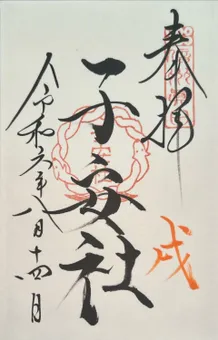 奉拝
戌
子安社
令和六年八月十四日